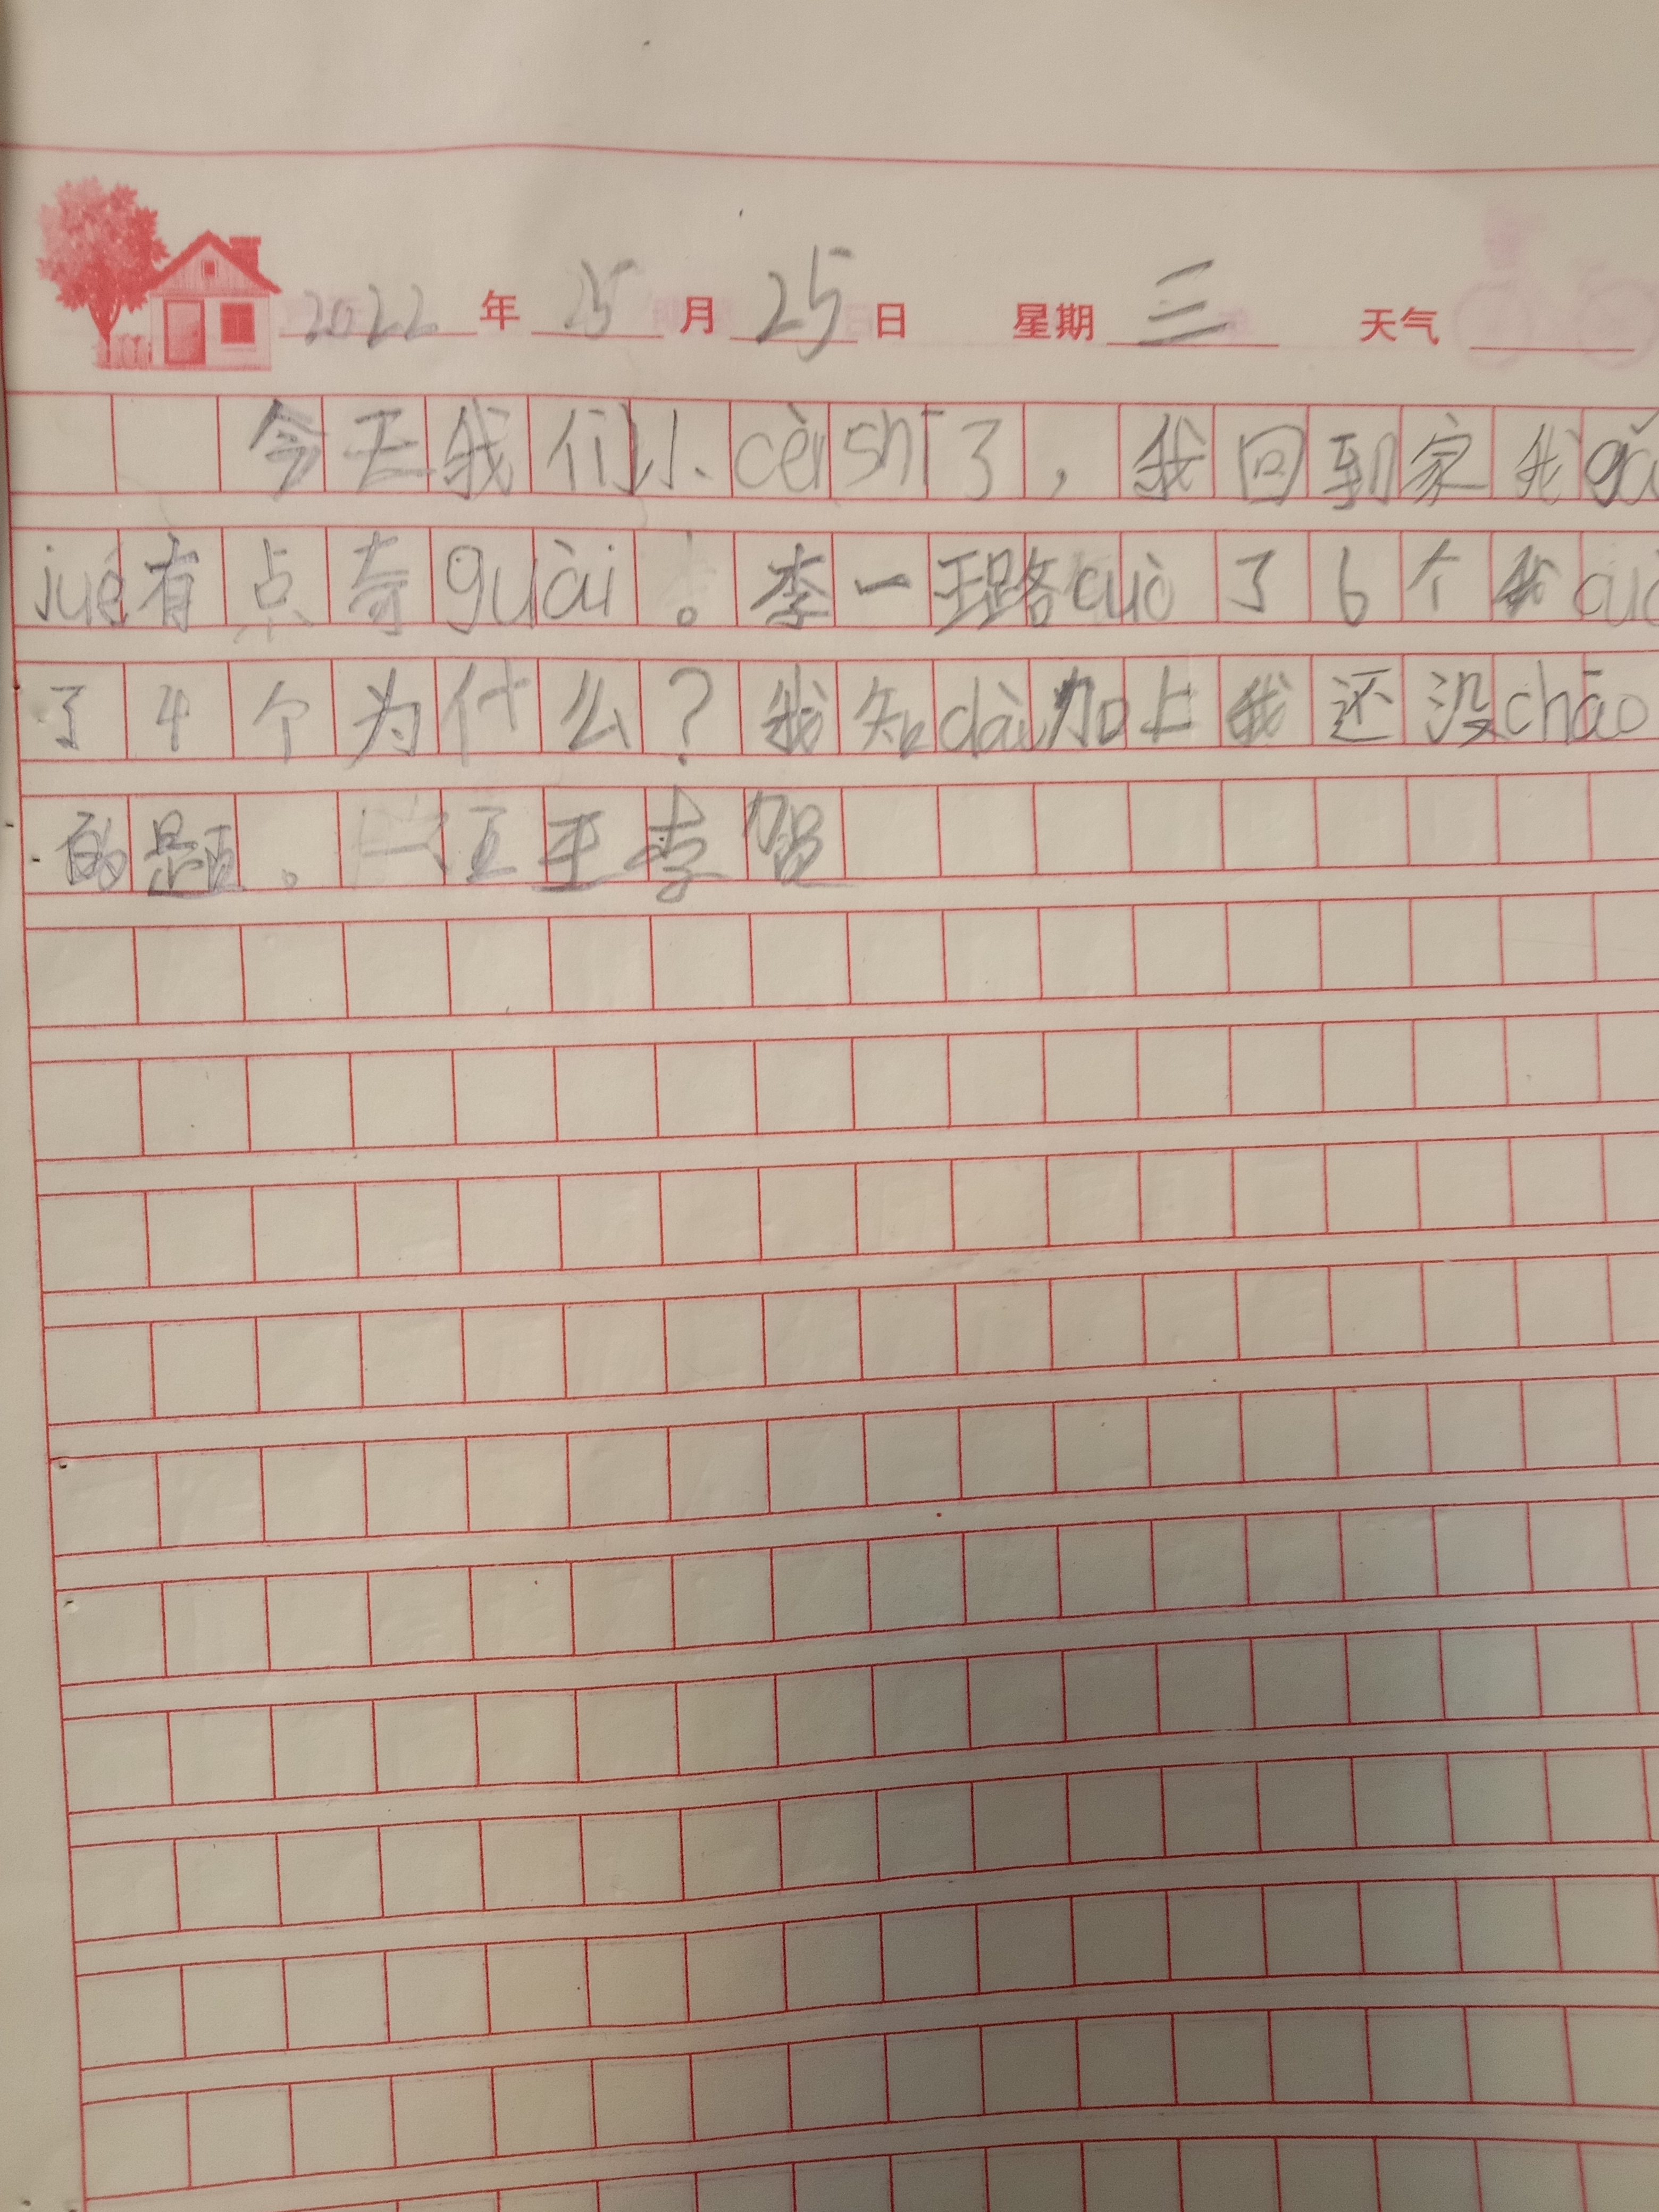 2022 年 25 月 25 日 星期 三 天气
今天我们小cèshì了，我回到家我gǎ
jué有点奇guài。李一璐cuò了6个我cuò
了4个为什么？我知dào加上我还没chāo
的题。